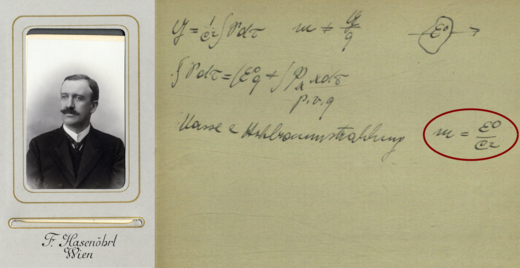 F. Hasenöhrl
Wien
𝒢 = 1/c² ∫ P dτ   m ≠ 𝒢/q   ε⁰
∫ P dτ = (ε⁰q + ∫ pₓ x dτ
p.v.q
Masse d Hohlraumstrahlung   m = ε⁰/c²